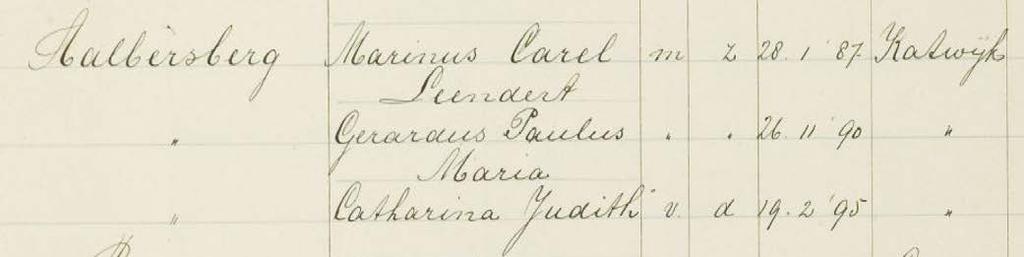 Aalbersberg Marinus Carel m z 28. 1 '87. Katwijk
Leendert
" Gerardus Paulus " " 26. 11 '90 "
Maria
" Catharina Judith v. d 19. 2 '95 "